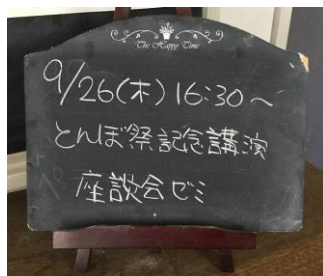 The Happy Time
9/26(木)16:30〜
とんぼ祭記念講演
座談会ゼミ